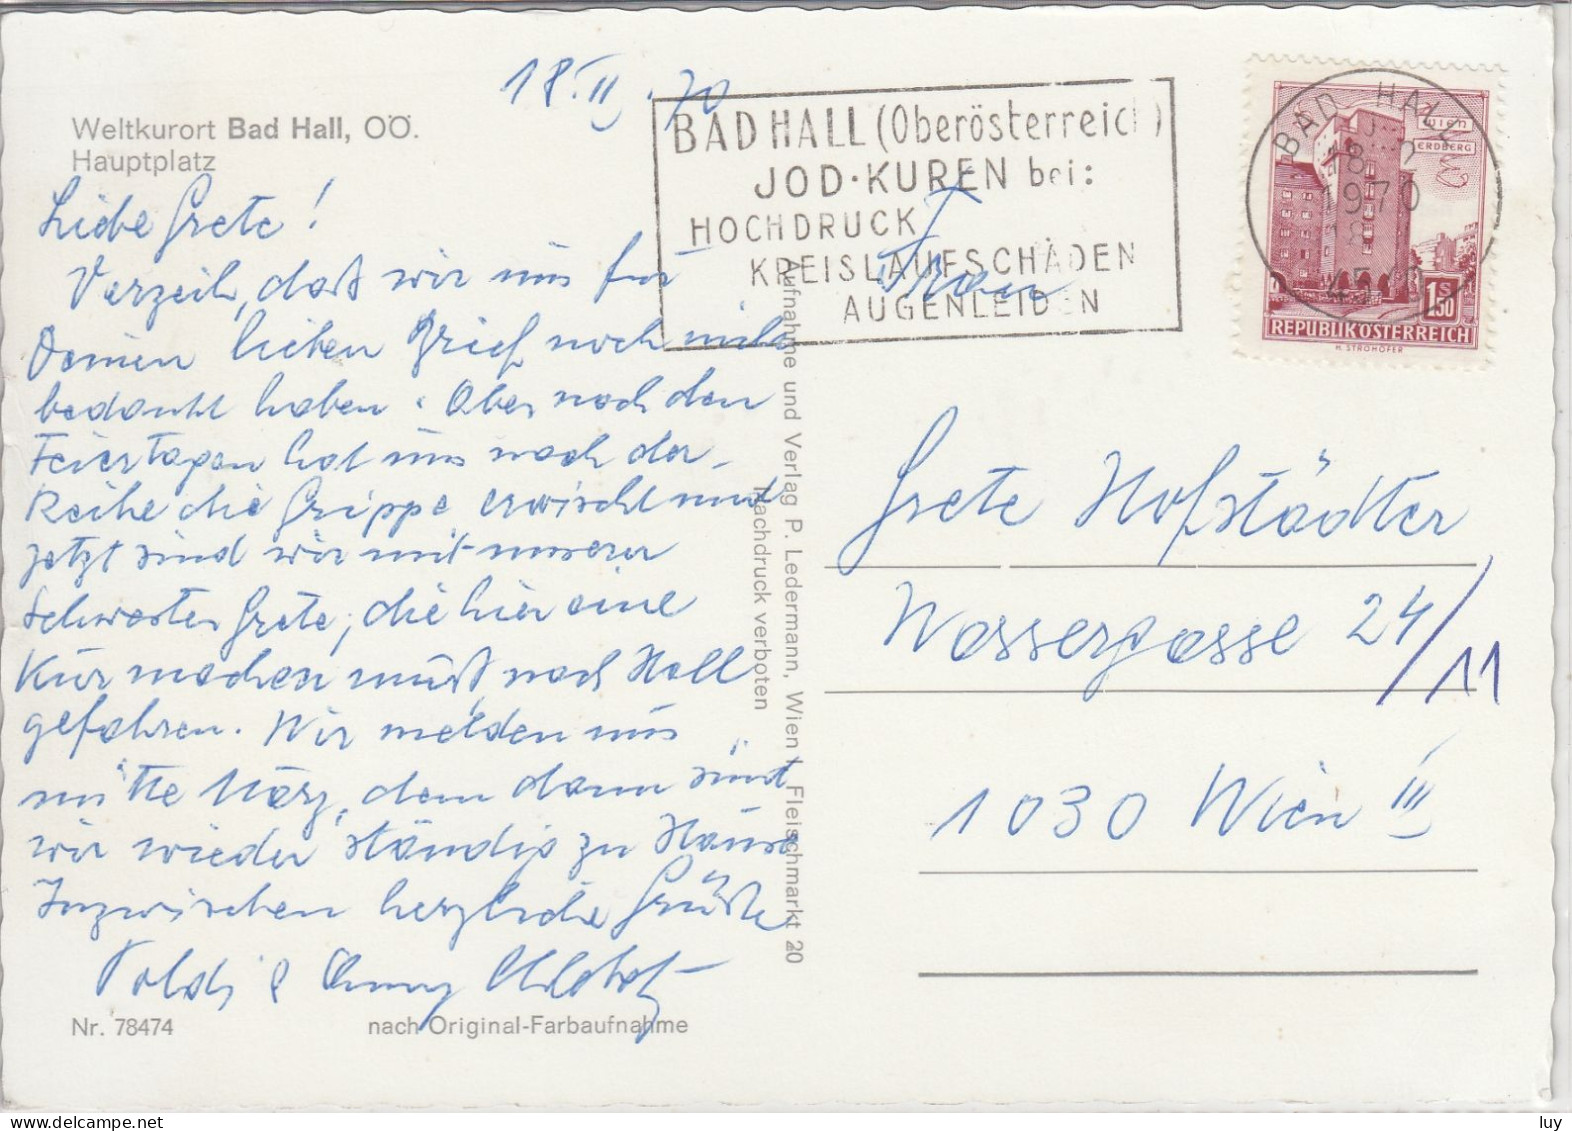 18.II.70
Weltkurort Bad Hall, OÖ.
Hauptplatz
Liebe Grete!
Verzeih, daß wir uns für
Deinen lieben Brief noch nicht
bedankt haben. Aber nach den
Feiertagen hat uns nach der
Reihe die Grippe erwischt und
jetzt sind wir mit unserer
Schwester Grete, die hier eine
Kur machen muß, nach Hall
gefahren. Wir melden uns
mitte März, denn dann sind
wir wieder ständig zu Hause
Inzwischen herzliche Grüße
Poldi &
Nr. 78474
nach Original-Farbaufnahme
Aufnahme und Verlag P. Ledermann, Wien I, Fleischmarkt 20
Nachdruck verboten
BAD HALL (Oberösterreich)
JOD·KUREN bei:
HOCHDRUCK
KREISLAUFSCHÄDEN
AUGENLEIDEN
BAD HALL
18.
1970
18
45
WIEN
ERDBERG
S
1.50
REPUBLIK ÖSTERREICH
H. STROHOFER
Frau
Grete Hofstädter
Wassergasse 24/11
1030 Wien III